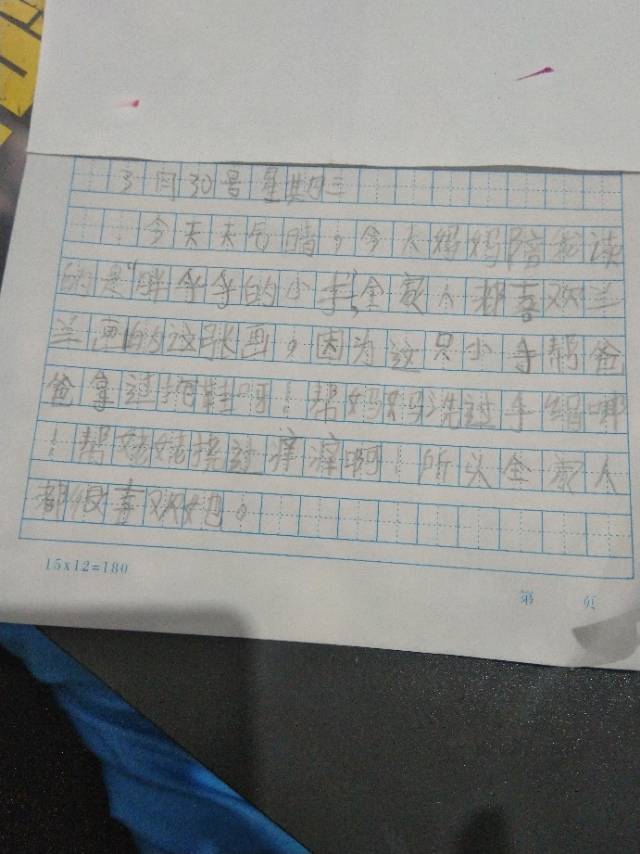 3月30号星期三
今天天气晴，今天妈妈陪我读
的是“胖乎乎的小手”，全家人都喜欢兰
兰画的这张画，因为这只小手帮爸
爸拿过拖鞋呀！帮妈妈洗过手绢哪
！帮姥姥挠过痒痒啊！所以全家人
都很喜欢她。
15x12=180
第 页